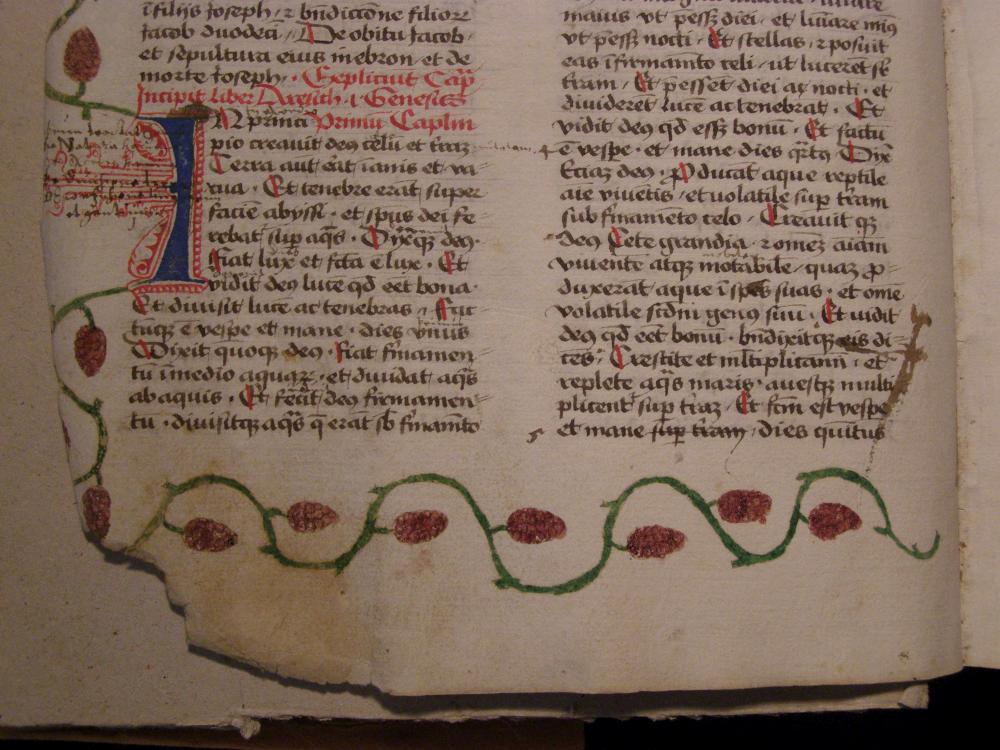 i filijs Joseph, ⁊ bndiccione filiore
Jacob duodeci, De obitu Jacob
et sepultura eius in ebron et de
morte Joseph. Expliciut Cap
Incipit liber Bresith i Genesios
IN princi Primu Caplm
pio creauit deꝯ celu et traz
Terra aut erat ianis et va
cua. Et tenebre erat super
facie abyssi. et spus dei fe
rebat sup aqs. Dixitqꝫ deꝯ.
fiat lux et fcta e lux. Et
vidit deꝯ luce qd eet bona.
Et diuisit luce ac tenebras.
tuqꝫ e vespe et mane. dies vnus
Dixit quoqꝫ deꝯ. fiat firmamen
tu i medio aquaꝝ. et diuidat aqs
ab aquis. Et fecit deꝯ firmamen
tu. diuisitqꝫ aqs q erat sb firmamto
maius vt pessꝫ diei. et luiare miꝯ
vt pessꝫ nocti. Et stellas, ⁊ posuit
eas i firmamto celi, ut luceret sr
tram, Et pesset diei ac nocti. et
diuideret luce ac tenebras. Et
vidit deꝯ qd essꝫ bonu. Et factu
4 e vespe. et mane dies qrtꝯ Dixit
Eciaz deꝯ. Producat aque reptile
aie viuetis, et volatile sup tram
sub firmameto celo, Creauit qꝫ
deꝯ Cete grandia. ⁊ omeꝫ aiam
viuente atqꝫ motabile, quaꝫ p
duxerat aque i spes suas. et ome
volatile scdm genꝯ suu. Et vidit
deꝯ qd eet bonu. bndixitqꝫ eis di
ces. Crescite et mltiplicami. et
replete aqs maris. auesqꝫ multi
plicent sup traꝫ. Et fcm est vespe
5 et mane sup tram, dies quitus